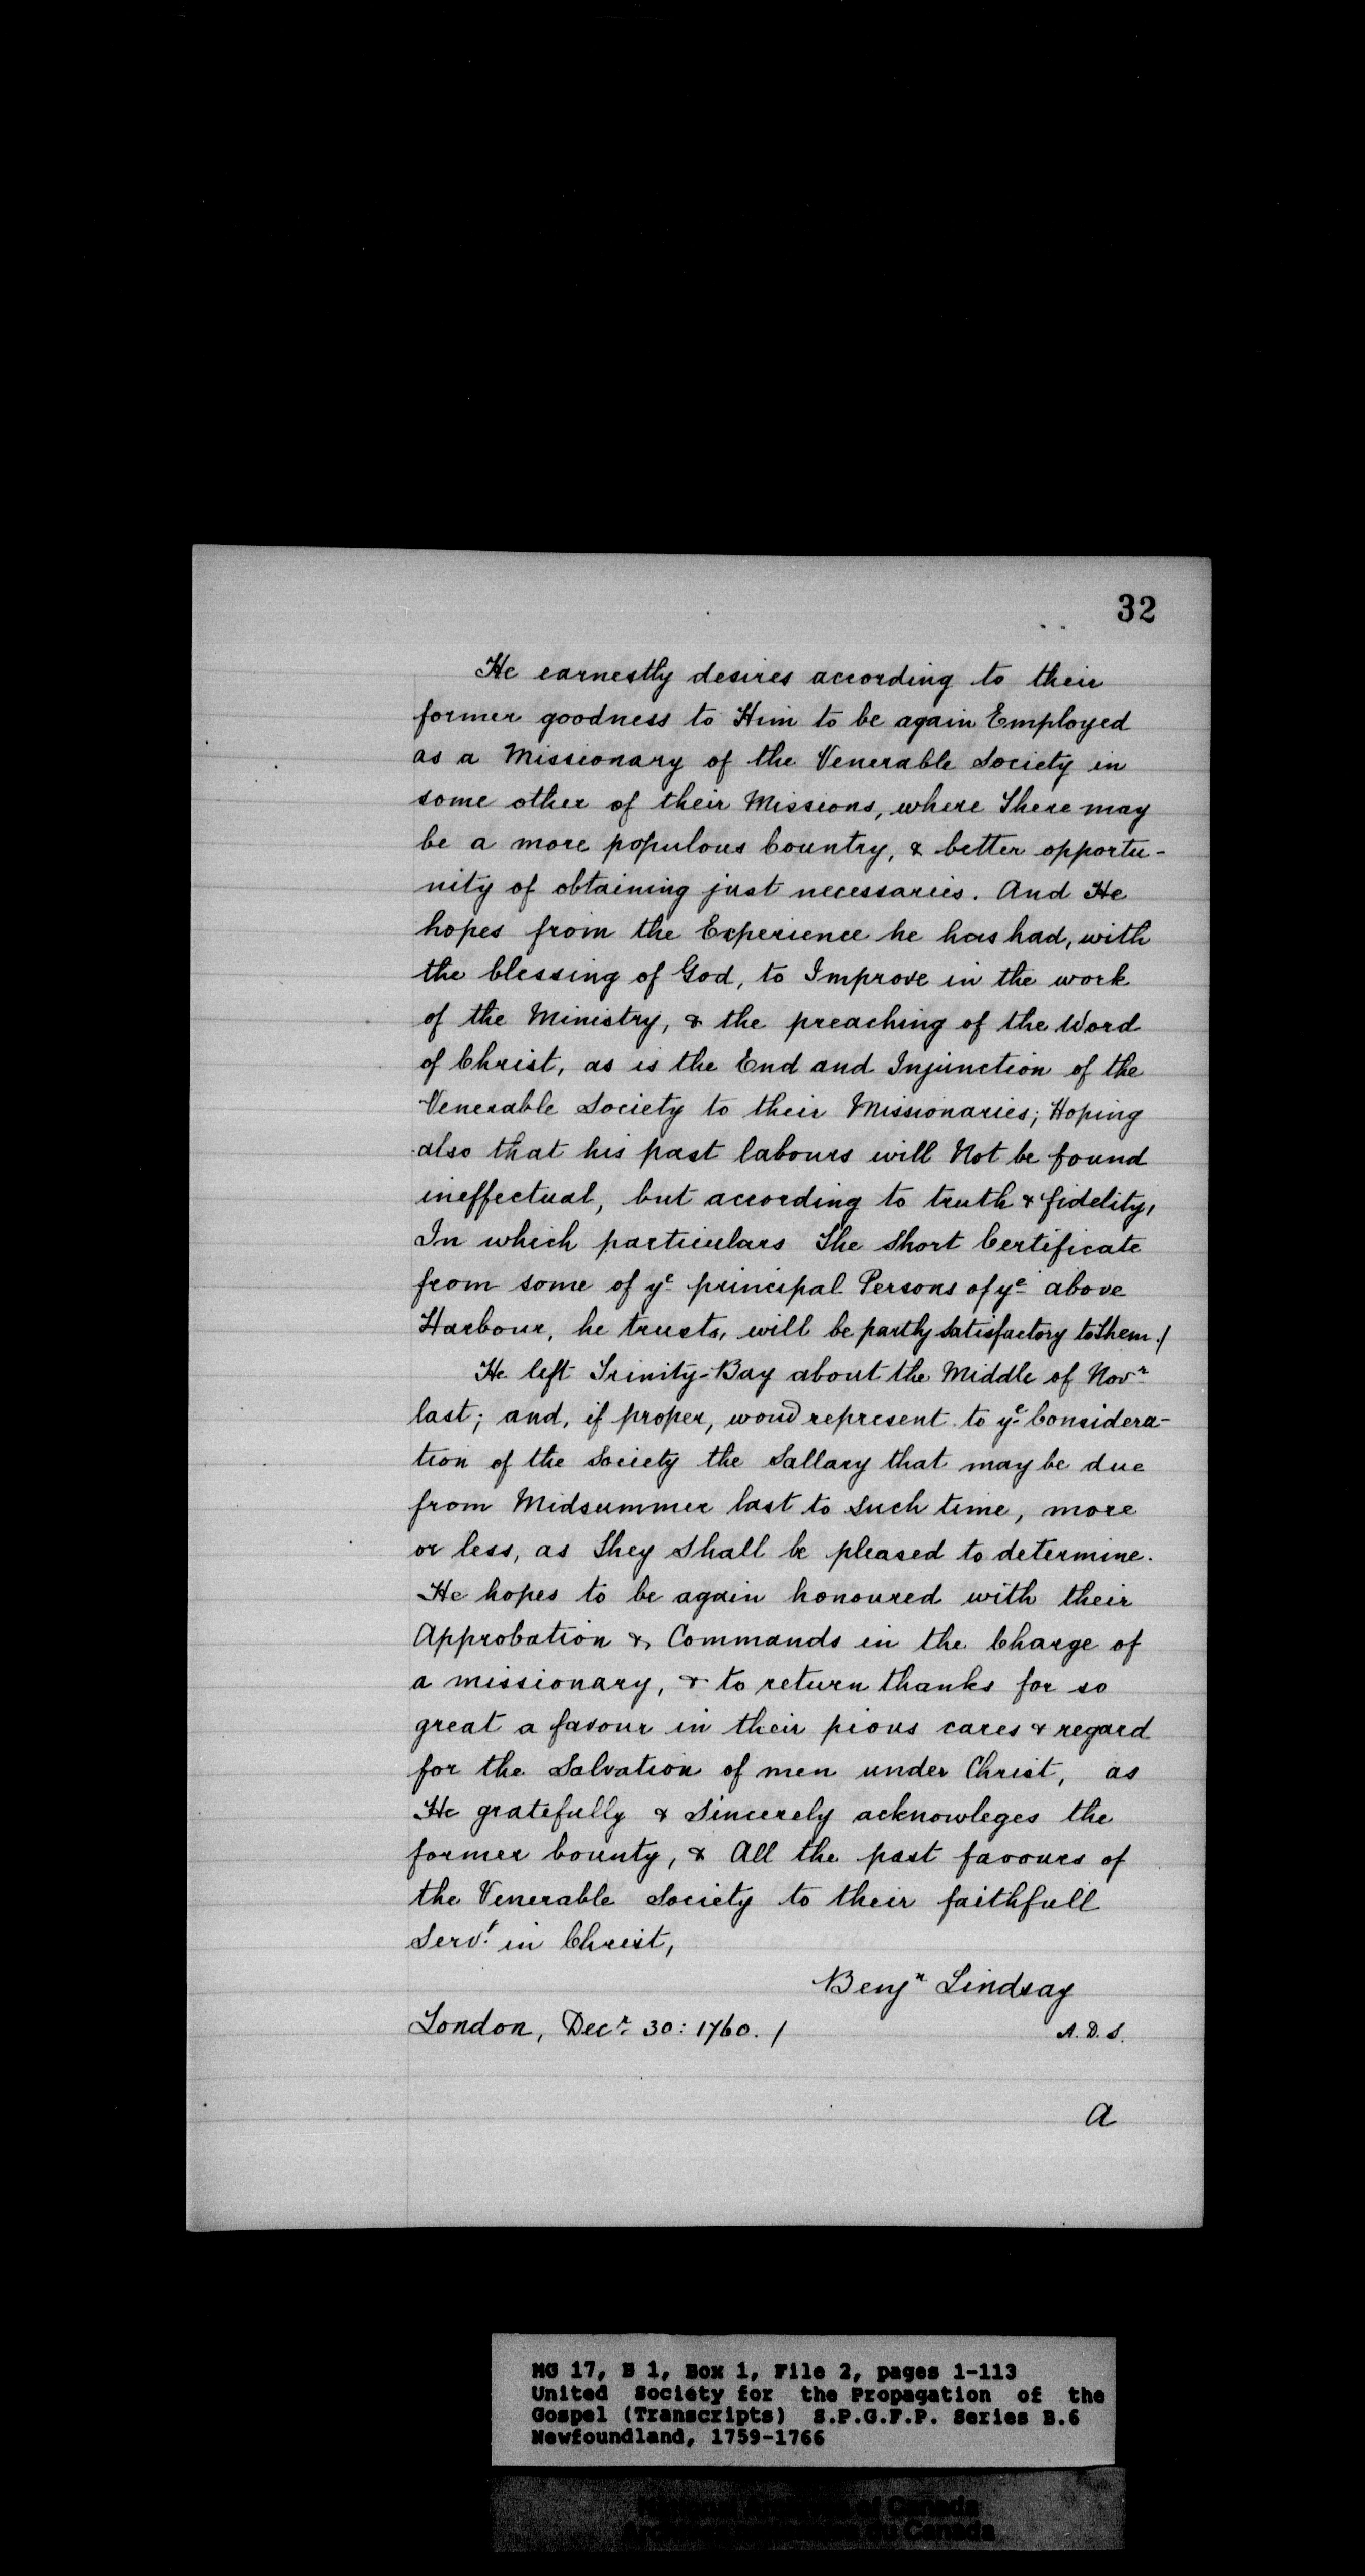 32
He earnestly desires according to their
former goodness to Him to be again Employed
as a Missionary of the Venerable Society in
some other of their Missions, where There may
be a more populous Country, & better opportu-
nity of obtaining just necessaries. And He
hopes from the Experience he has had, with
the blessing of God, to Improve in the work
of the Ministry, & the preaching of the Word
of Christ, as is the End and Injunction of the
Venerable Society to their Missionaries; Hoping
also that his past labours will Not be found
ineffectual, but according to truth & fidelity,
In which particulars The Short Certificate
from some of yᵉ principal Persons of yᵉ above
Harbour, he trusts, will be partly satisfactory to Them./
He left Trinity-Bay about the Middle of Novʳ
last; and, if proper, woud represent to yᵉ Considera-
tion of the Society the Sallary that may be due
from Midsummer last to such time, more
or less, as They Shall be pleased to determine.
He hopes to be again honoured with their
Approbation & Commands in the Charge of
a missionary, & to return thanks for so
great a favour in their pious cares & regard
for the Salvation of men under Christ, as
He gratefully & Sincerely acknowleges the
former bounty, & All the past favours of
the Venerable Society to their faithfull
Servᵗ in Christ,
Benjⁿ Lindsay
London, Decʳ 30: 1760. /
A. D. S.
A
MG 17, B 1, Box 1, File 2, pages 1-113
United Society for the Propagation of the
Gospel (Transcripts) S.P.G.F.P. Series B.6
Newfoundland, 1759-1766
National Archives of Canada
du Canada